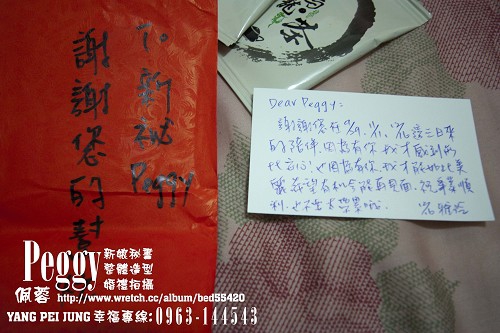 To 新祕
Peggy
謝謝您的封
茶
Dear Peggy:
謝謝您在
這三日來
的陪伴,因為有你,我才感到
也因為有你,我才能如此美
希望有机会能再見面,祝事業順
利
Peggy
佩蓉
新娘秘書
整體造型
婚禮拍攝
http://www.wretch.cc/album/bed55420
YANG PEI JUNG 幸福專線:0963-144543